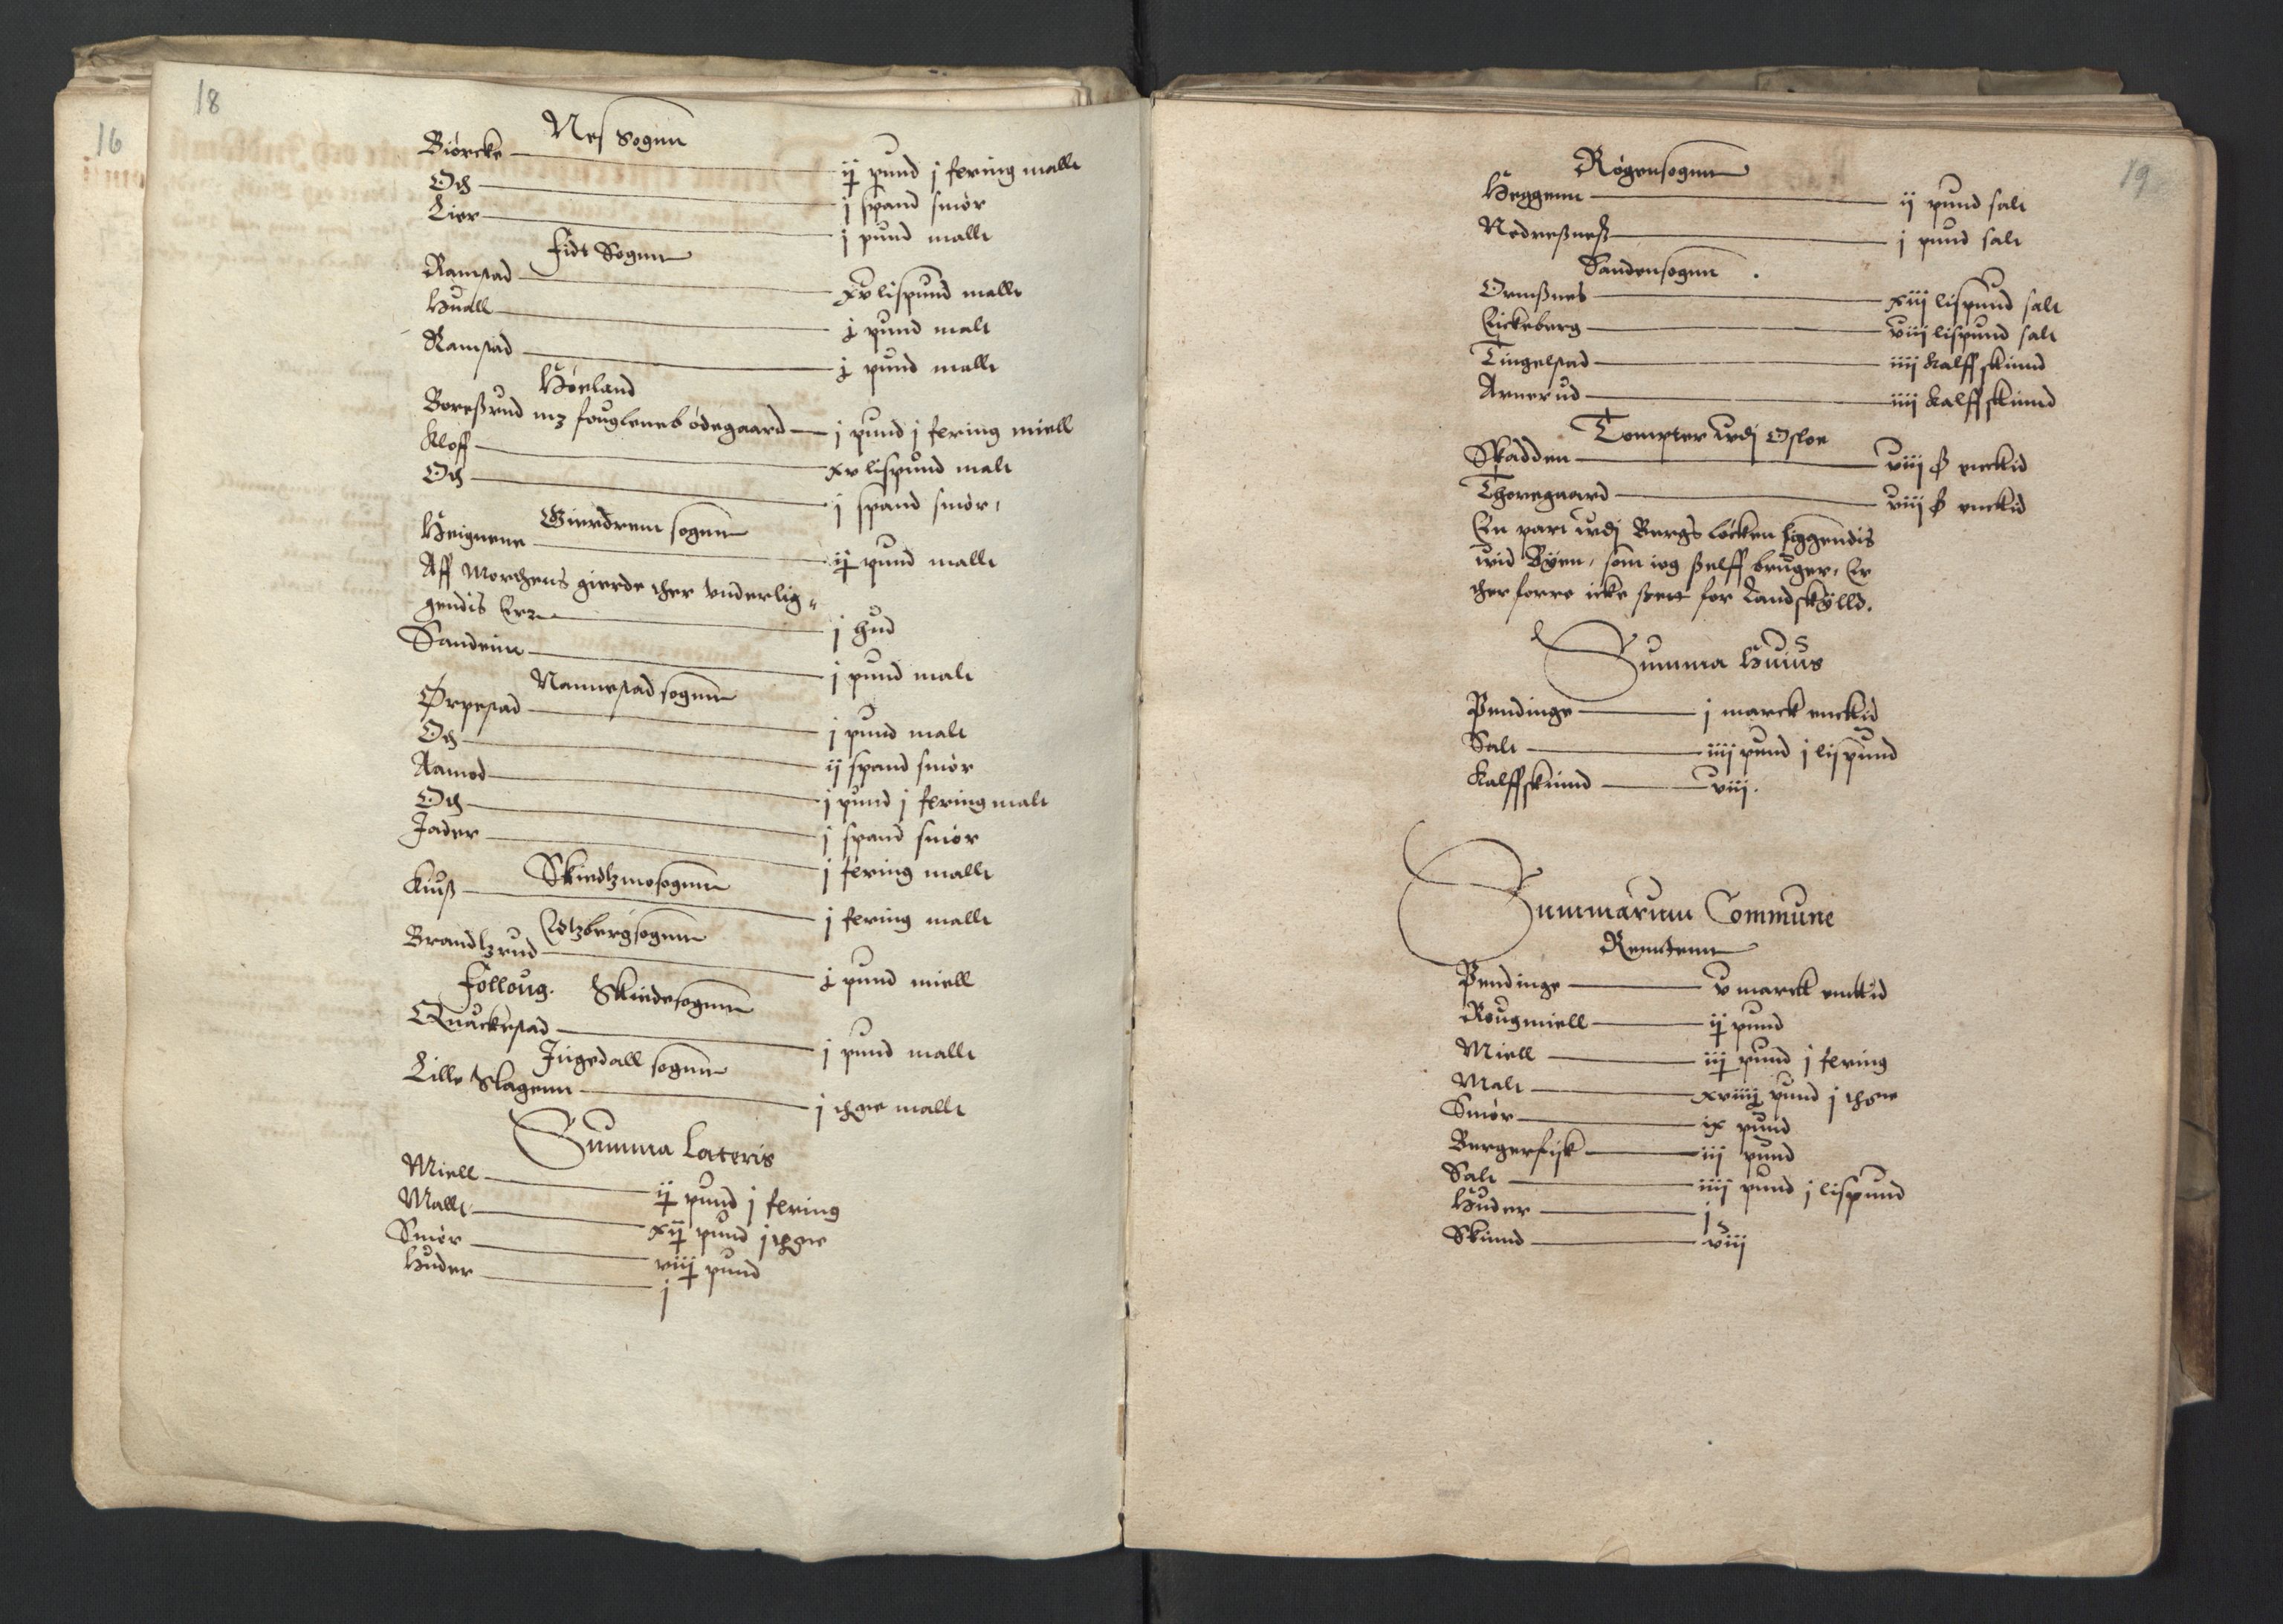 18
16
Nes sognn
Biørcke ij pund j fering mallt
Och j spand smør
Lier j pund mallt
Fidt Sognn
Ramstad xv lispund mallt
Huall j pund malt
Ramstad j pund mallt
Høeland
Boreßrud mz fouglenes ødegaard j pund j fering miell
Kloff xv lispund malt
Och j spand smør
Gierdrem sognn
Heignene ij pund mallt
Aff Morthens gierde ther vnderlig
gendis Err j hud
Sandeim j pund malt
Nannestad sognn
Ørpestad j pund malt
Och ij spand smør
Aamod j pund j fering malt
Och j spand smør
Jader j fering mallt
Skiedtzmosognn
Kiuß j fering mallt
Edtzbergsognn
Brandtzrud j pund miell
Folloug. Skiedesognn
Quackestad j pund mallt
Jngedall sognn
Lille Slagenn j thønne mallt
Summa Lateris
Miell ij pund j fering
Mallt xij pund j thøne
Smør viij pund
Huder j
19
Røgensognn
Heggenn ij pund salt
Nedreßneß j pund salt
Sandensognn
Ormßnes xiij lispund salt
Eickeberg viij lispund salt
Tingelstad iiij kalffskinnd
Arnerud iiij kalffskinnd
Tompter vdj Osloe
Skadden viij ß enckid
Thoregaard viij ß enckid
En part vdj Bergs løcken liggendis
vid Byen, som ieg ßelff bruger, Er
therforre icke ßett for Landskylld.
Summa Huius
Pendinge j marck enckid
Salt iiij pund j lispund
Kalffskinnd viij.
Summarum Commune
Renntenn
Pendinge v marck enckid
Rougmiell ij pund
Miell iij pund j fering
Malt xviiij pund j thøne
Smør ix pund
Bergerfisk iij pund
Salt iiij pund j lispund
Huder j
Skinnd viij